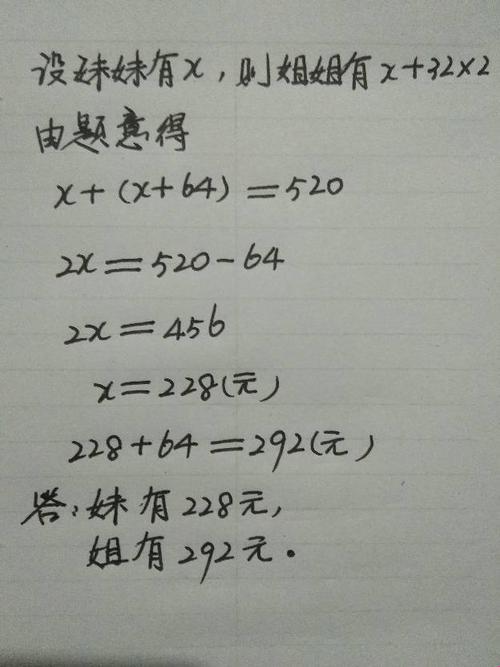 设妹妹有x，则姐姐有x+32×2
由题意得
x+（x+64）=520
2x=520-64
2x=456
x=228（元）
228+64=292（元）
答：妹有228元，
姐有292元．